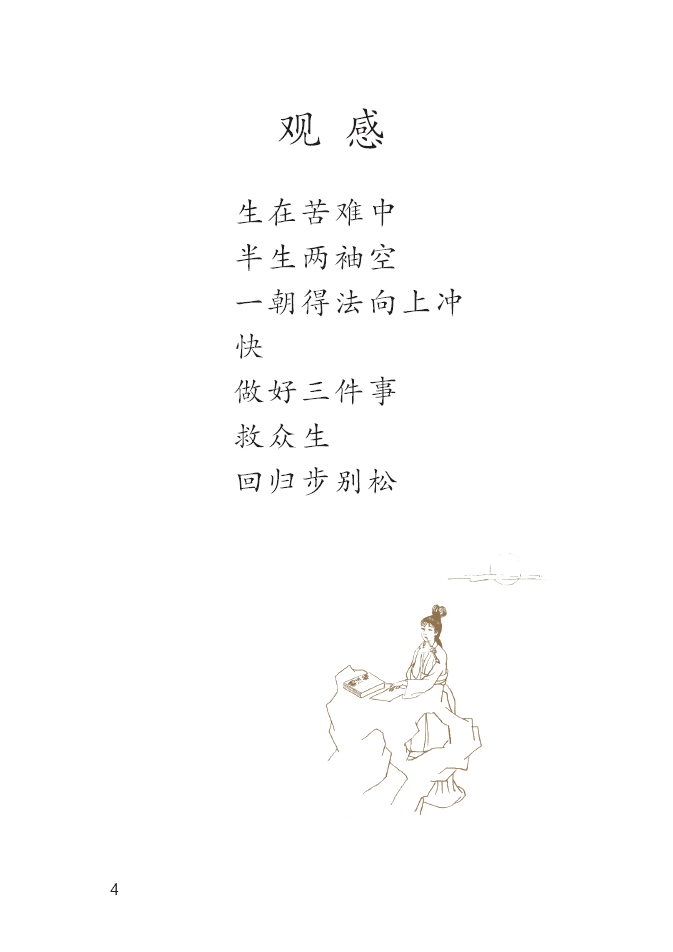 观 感
生在苦难中
半生两袖空
一朝得法向上冲
快
做好三件事
救众生
回归步别松
4